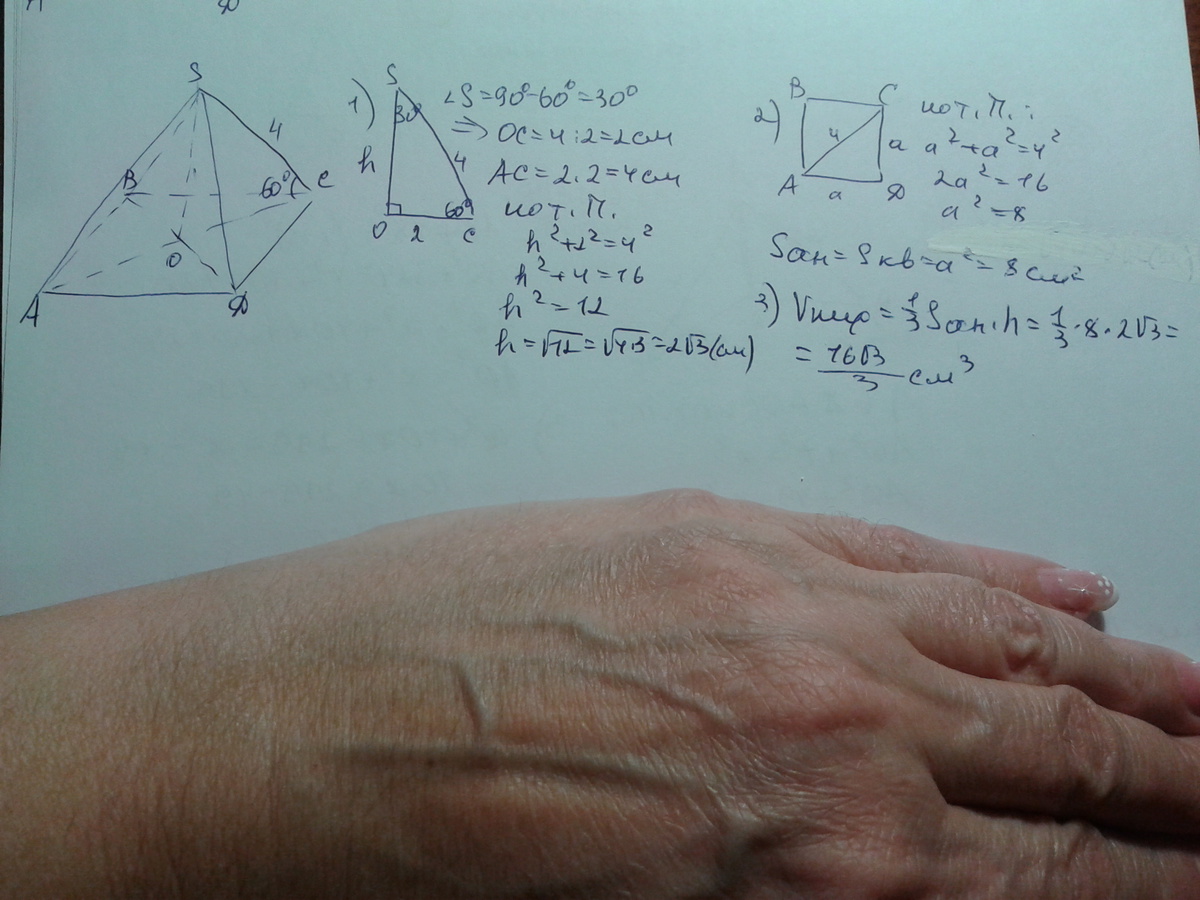 А D
S
4
B
60° C
O
A D
1)
S
30°
h
4
60°
O 2 C
∠S = 90° - 60° = 30°
⇒ OC = 4 : 2 = 2 см
AC = 2 · 2 = 4 см
по т. П.
h² + 2² = 4²
h² + 4 = 16
h² = 12
h = √12 = √4·3 = 2√3 (см)
2)
B C
4
a
A a D
по т. П.:
a² + a² = 4²
2a² = 16
a² = 8
Sосн = Sкв = a² = 8 см²
3) Vпир = 1/3 Sосн · h = 1/3 · 8 · 2√3 =
= 16√3/3 см³